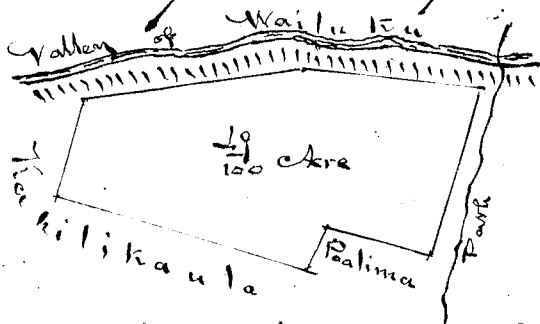 Valley of Wailuku
19/100 Acre
kilikaula
Poalima
Path